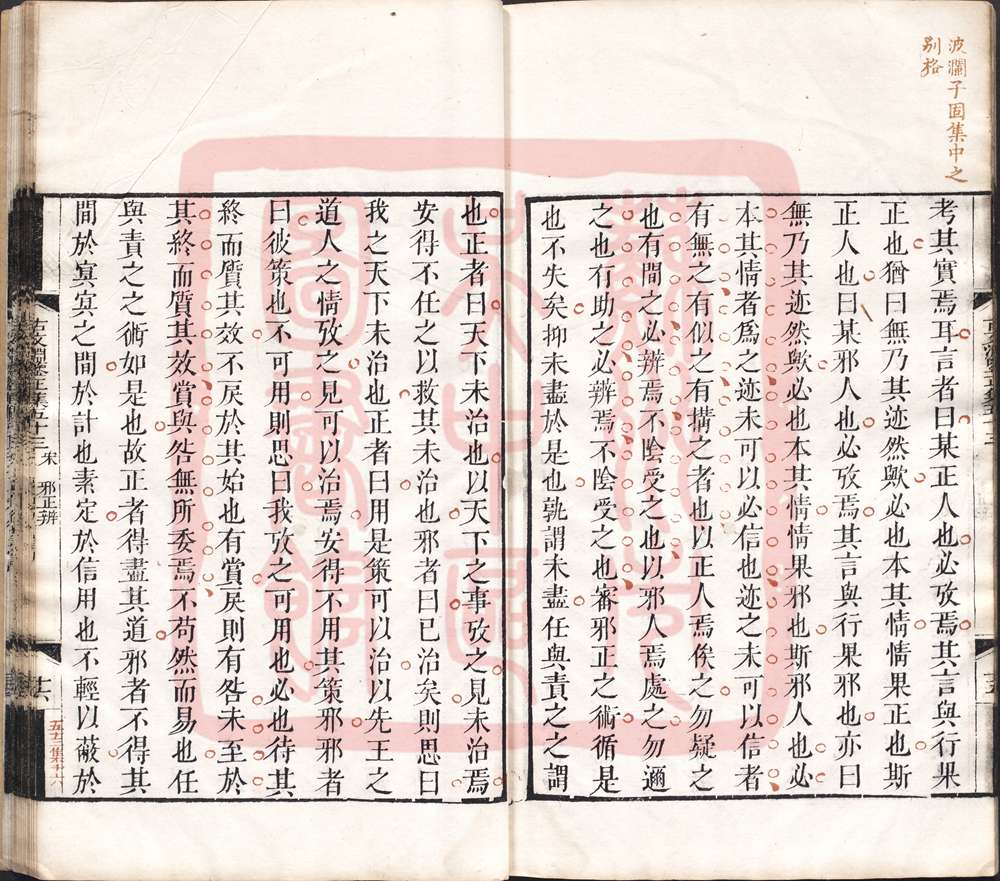 波瀾子固集中之
別格
考其實焉耳言者曰某正人也必攷焉其言與行果
正也猶曰無乃其迹然歟必也本其情情果正也斯
正人也曰某邪人也必攷焉其言與行果邪也亦曰
無乃其迹然歟必也本其情情果邪也斯邪人也必
本其情者為之迹未可以必信也迹之未可以信者
有無之有似之有構之者也以正人焉俟之勿疑之
也有間之必辨焉不陰受之也以邪人焉處之勿邇
之也有助之必辨焉不陰受之也審邪正之術循是
也不失矣抑未盡於是也孰謂未盡任與責之之謂
也正者曰天下未治也以天下之事攷之見未治焉
安得不任之以救其未治也邪者曰已治矣則思曰
我之天下未治也正者曰用是策可以治以先王之
道人之情攷之見可以治焉安得不用其策邪邪者
曰彼策也不可用則思曰我攷之可用也必也待其
終而質其效不戾於其始也有賞戾則有咎未至於
其終而質其效賞與咎無所委焉不苟然而易也任
與責之之術如是也故正者得盡其道邪者不得其
間於冥冥之間於計也素定於信用也不輕以蔽於
邪正辨